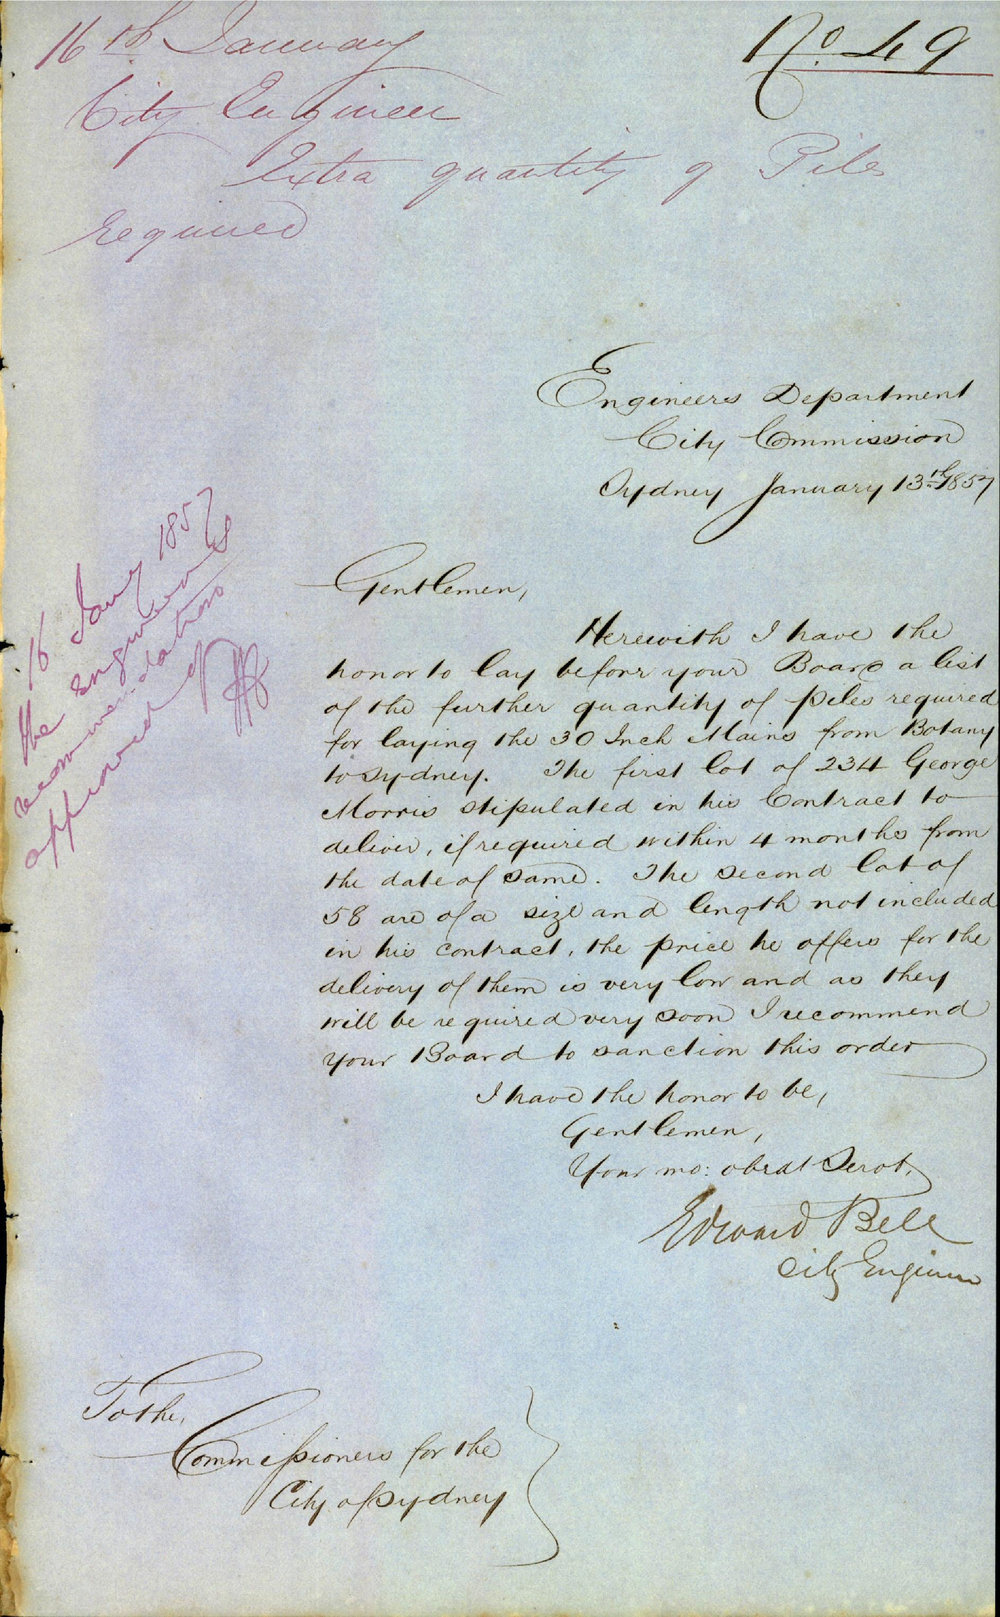 No. 49
16th January
City Engineer
Extra quantity of Piles
required
Engineers Department
City Commission
Sydney January 13th 1857
16 Jany 1857
The Engineers
recommendation
approved of
Gentlemen,
Herewith I have the
honor to lay before your Board a list
of the further quantity of piles required
for laying the 30 Inch Mains from Botany
to Sydney. The first lot of 234 George
Morris stipulated in his Contract to
deliver, if required within 4 months from
the date of same. The second lot of
58 are of a size and length not included
in his contract, the price he offers for the
delivery of them is very low and as they
will be required very soon I recommend
your Board to sanction this order
I have the honor to be,
Gentlemen,
Your mo: obedt Servt,
Edward Bell
City Engineer
To the,
Commissioners for the
City of Sydney